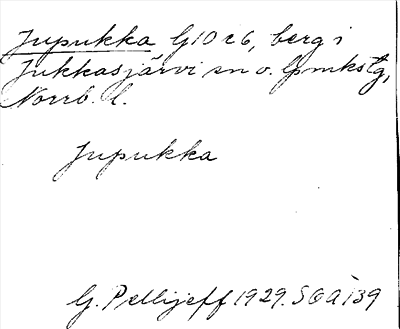 Jupukka G10 c6, berg i
Jukkasjärvi sn o. lpmkstg,
Norrb. l.
Jupukka
G. Pellijeff 1929. SOA 139